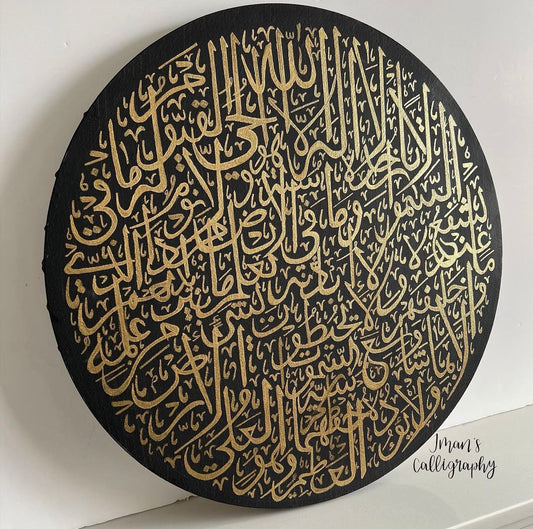 الله لا إله إلا هو الحي القيوم
لا تأخذه سنة ولا نوم له ما في
السموات وما في الأرض من ذا الذي
يشفع عنده إلا بإذنه يعلم ما بين أيديهم
وما خلفهم ولا يحيطون بشيء من علمه
إلا بما شاء وسع كرسيه السموات والأرض
ولا يؤده حفظهما وهو العلي العظيم
Iman's
Calligraphy